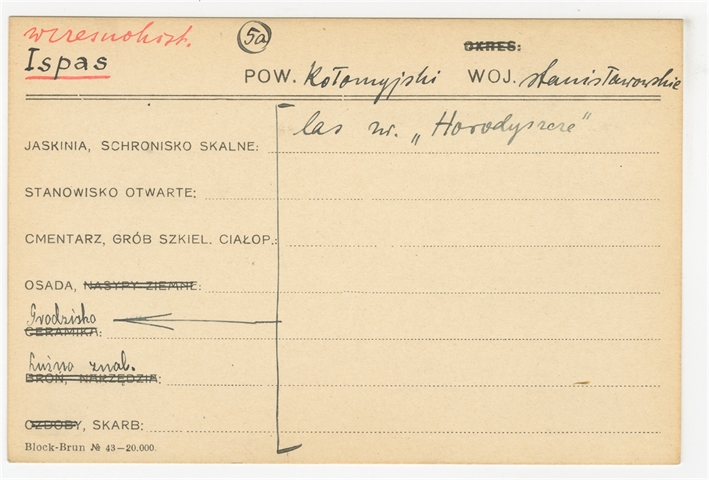 wczesnohist. 5a OKRES:
Ispas POW. Kołomyjski WOJ. stanisławowskie
las zw. „Horodyszcze”
JASKINIA, SCHRONISKO SKALNE:
STANOWISKO OTWARTE:
CMENTARZ, GRÓB SZKIEL. CIAŁOP.:
OSADA, NASYPY ZIEMNE:
Grodzisko
CERAMIKA:
Luźno znal.
BROŃ, NARZĘDZIA:
OZDOBY, SKARB:
Block-Brun № 43—20.000.